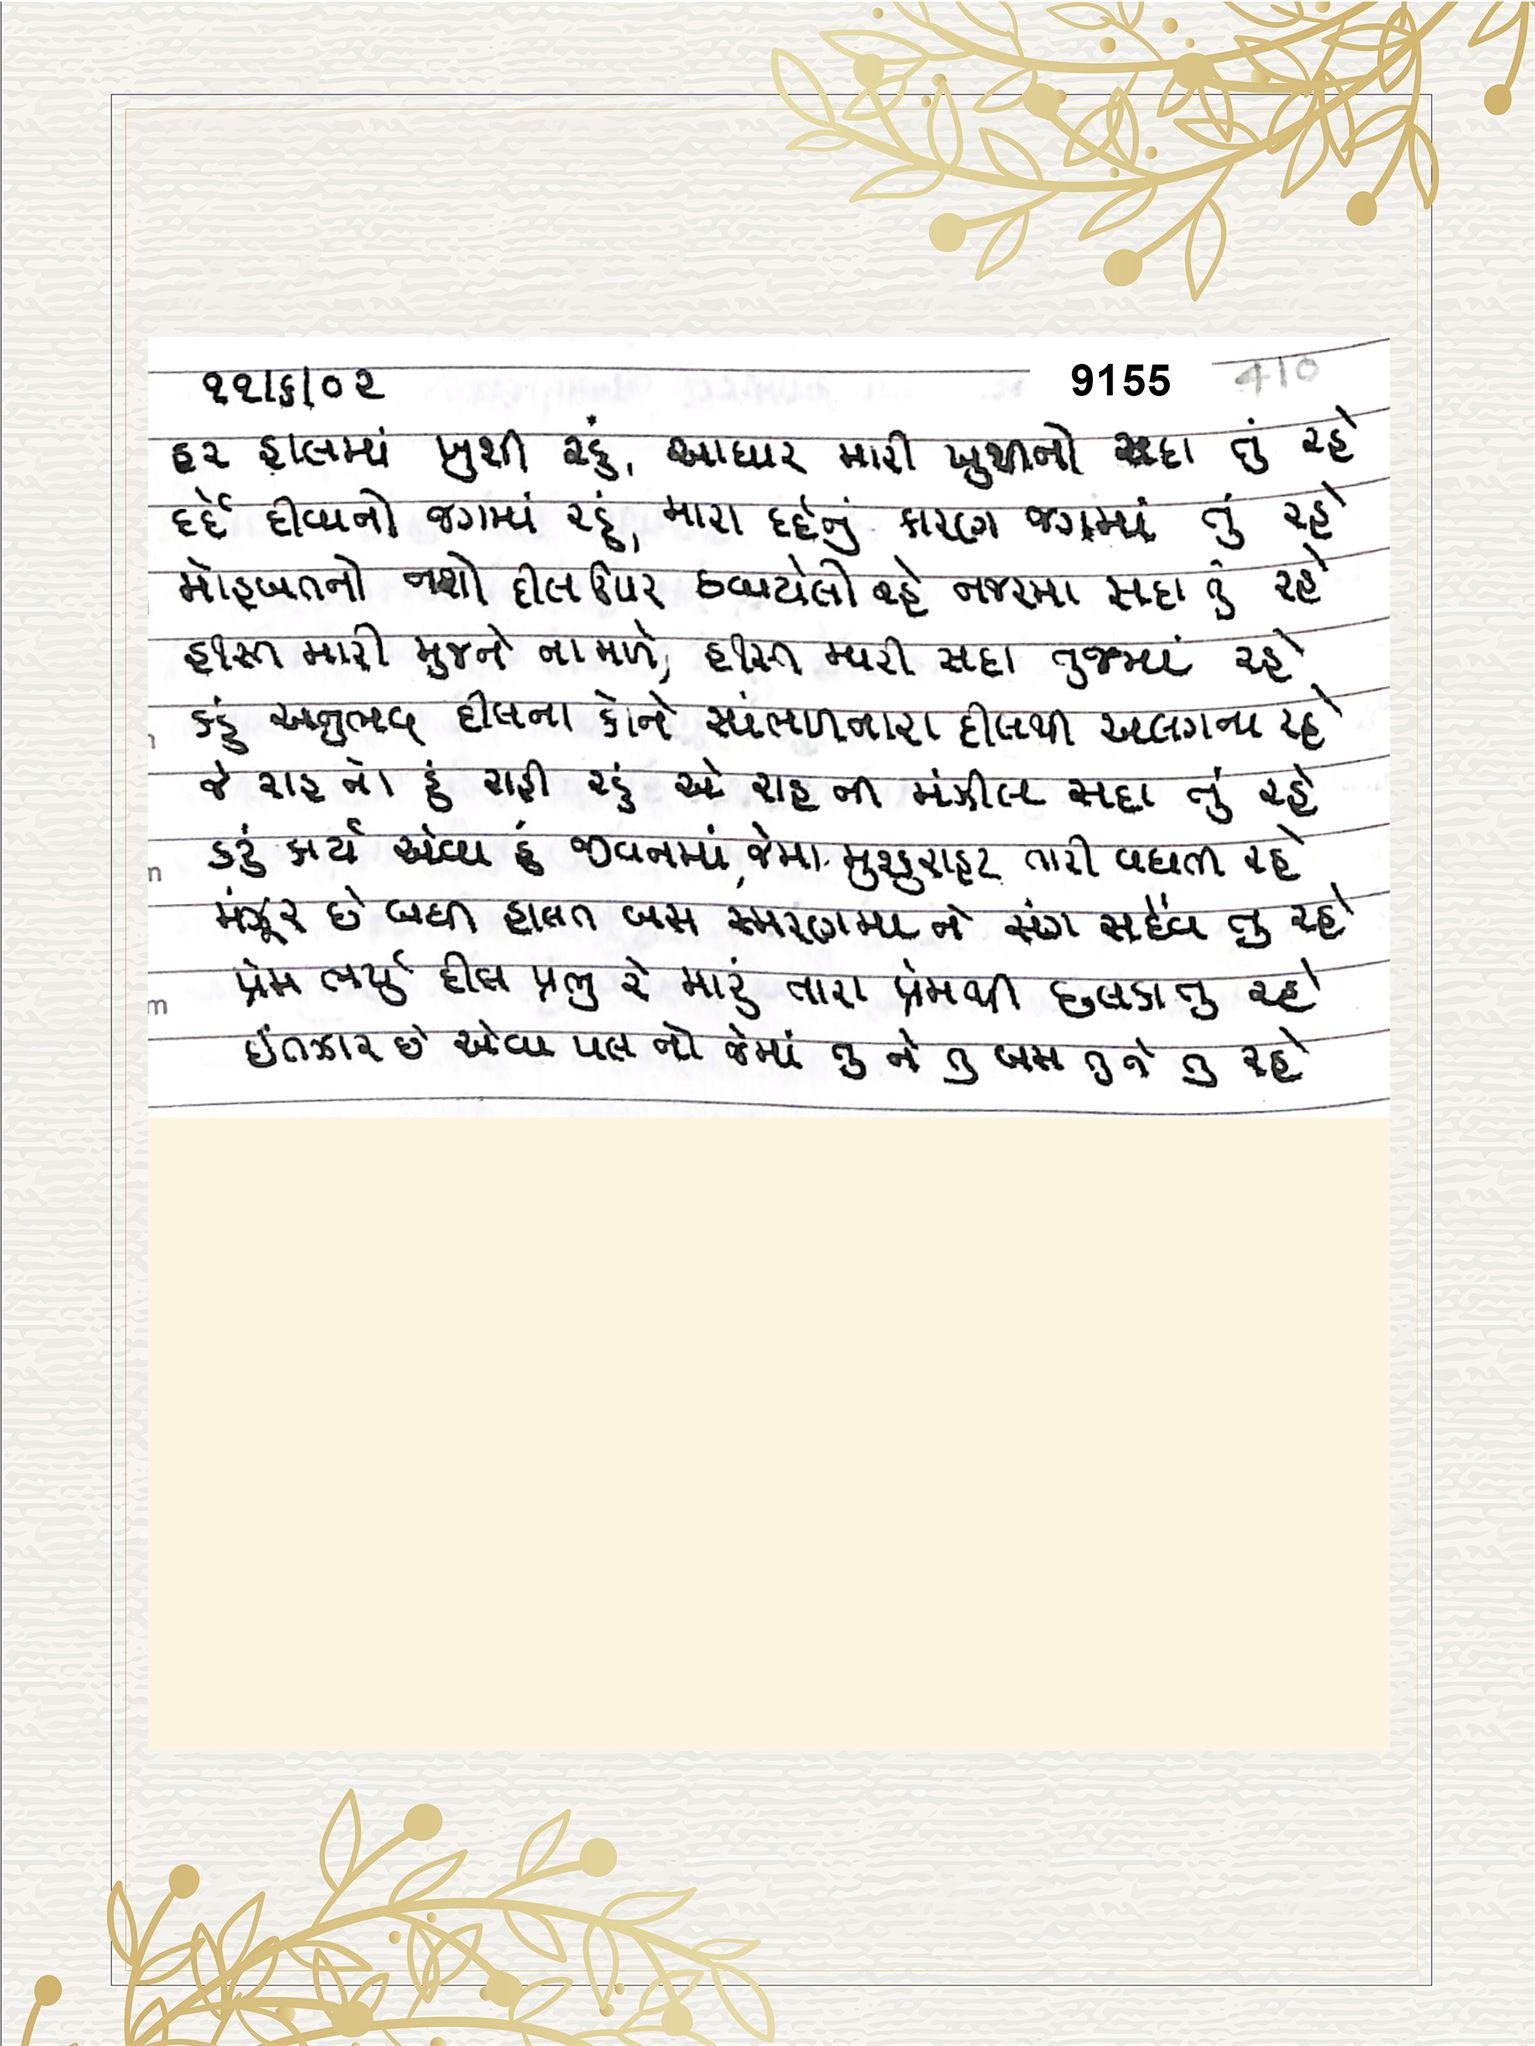 ૨૨/૬/૦૨
9155
410
હર હાલમાં ખુશી રહું, આધાર મારી ખુશીનો સદા તું રહે
દર્દ દીવાનો જગમાં રહું, મારા દર્દનું કારણ જગમાં તું રહે
મોહબતનો નશો દીલ ઉપર રહે નજરમા સદા તું રહે
હસ્તિ મારી મુજને ના મળે, હસ્તિ મારી સદા તુજમાં રહે
કહું અનુભવ દીલના કોને સાંભળનારા દીલથી અલગના રહે
જે રાહ નો હું રાહી રહું એ રાહ ની મંઝીલ સદા તું રહે
કરું કાર્ય એવા હું જીવનમાં, જેમા મુશ્કુરાહટ તારી વધતી રહે
મંઝૂર છે બધી હાલત બસ સ્મરણમા ને સંગ સદૈવ તુ રહે
પ્રેમ ભર્યુ દીલ પ્રભુ રે મારું તારા પ્રેમથી છલકાતુ રહે
ઈંતઝાર છે એવા પલ નો જેમાં તુ ને તુ બસ તુ ને તુ રહે